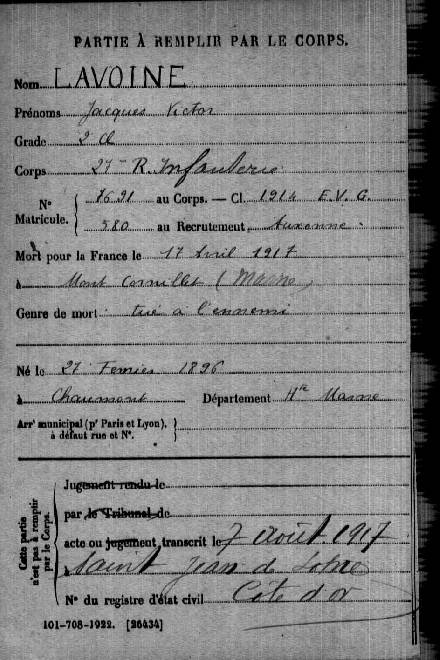 PARTIE À REMPLIR PAR LE CORPS.
Nom LAVOINE
Prénoms Jacques Victor
Grade 2 Cl
Corps 27e R. Infanterie
N° Matricule. 7691 au Corps. — Cl. 1914 E.V.G.
580 au Recrutement Auxonne
Mort pour la France le 17 Avril 1917
à Mont Cornillet (Marne)
Genre de mort tué à l'ennemi
Né le 27 Fevrier 1896
à Chaumont Département Hte Marne
Arrt municipal (pr Paris et Lyon), à défaut rue et N°.
Cette partie n'est pas à remplir par le Corps.
Jugement rendu le
par le Tribunal de
acte ou jugement transcrit le 7 Août 1917
Saint Jean de Losne
N° du registre d'état civil Côte d'or
101-708-1922. [26434]